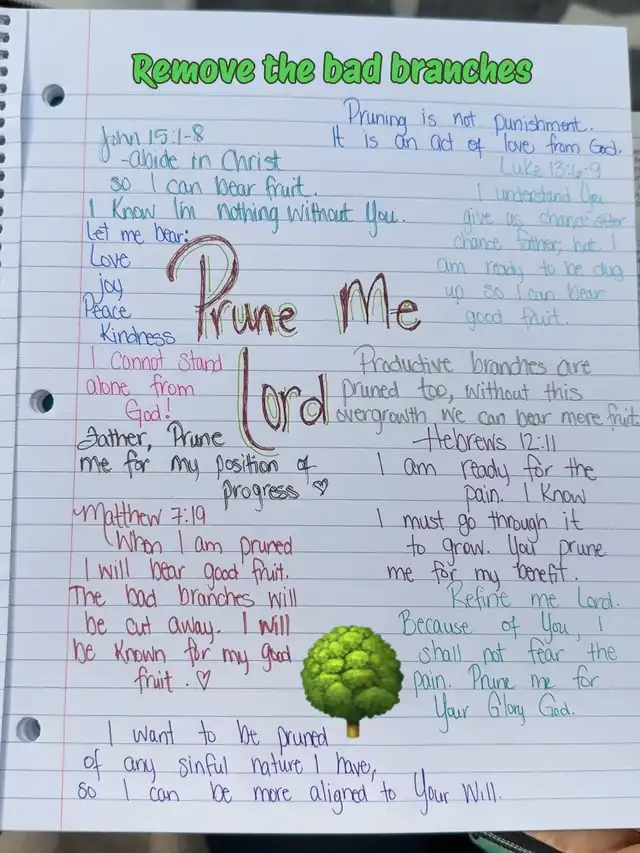 Remove the bad branches
Pruning is not punishment.
It is an act of love from God.
John 15:1-8
-abide in Christ
so I can bear fruit.
I Know I'm nothing without You.
Luke 13:6-9
I understand You
give us chance after
chance father, but I
am ready to be dug
up so I can bear
good fruit.
Let me bear:
Love
joy
Peace
Kindness
Prune Me
Lord
I cannot stand
alone from
God!
Productive branches are
pruned too, without this
overgrowth we can bear more fruit
Father, Prune
me for my position of
progress ♡
Hebrews 12:11
I am ready for the
pain. I Know
I must go through it
to grow. You prune
me for my benefit.
Matthew 7:19
When I am pruned
I will bear good fruit.
The bad branches will
be cut away. I will
be known for my good
fruit. ♡
Refine me Lord.
Because of You, I
shall not fear the
pain. Prune me for
Your Glory God.
I want to be pruned
of any sinful nature I have,
so I can be more aligned to Your Will.